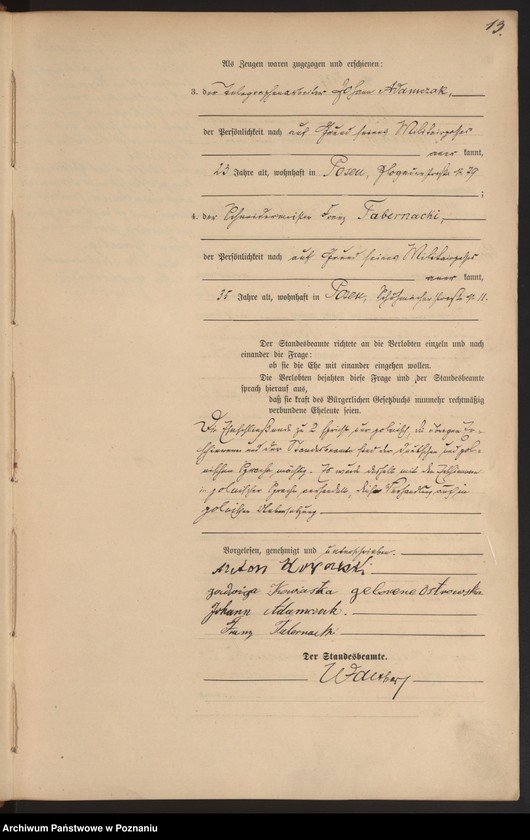 13.
Als Zeugen waren zugezogen und erschienen:
3. der Telegraphenarbeiter Johann Adamczak,
der Persönlichkeit nach auf Grund seines Militairpasses
kannt,
23 Jahre alt, wohnhaft in Posen, Glogauerstraße № 79
;
4. der Schneidermeister Franz Tabernacki,
der Persönlichkeit nach auf Grund seines Militairpasses
kannt,
35 Jahre alt, wohnhaft in Posen, Schuhmacherstraße № 11.
Der Standesbeamte richtete an die Verlobten einzeln und nach
einander die Frage:
ob sie die Ehe mit einander eingehen wollen.
Die Verlobten bejahten diese Frage und der Standesbeamte
sprach hierauf aus,
daß sie kraft des Bürgerlichen Gesetzbuchs nunmehr rechtmäßig
verbundene Eheleute seien.
Die Eheschließende zu 2 spricht nur polnisch, die übrigen Er-
schienenen und der Standesbeamte sind der deutschen und pol-
nischen Sprache mächtig. Es wurde deshalb mit den
in polnischer Sprache verhandelt, diese Verhandlung auch in
polnischer Uebersetzung
Vorgelesen, genehmigt und unterschrieben.
Anton Kowalski
Jadwiga geborene Ostrowska
Johann Adamczak.
Franz Tabernacki
Der Standesbeamte.
Archiwum Państwowe w Poznaniu